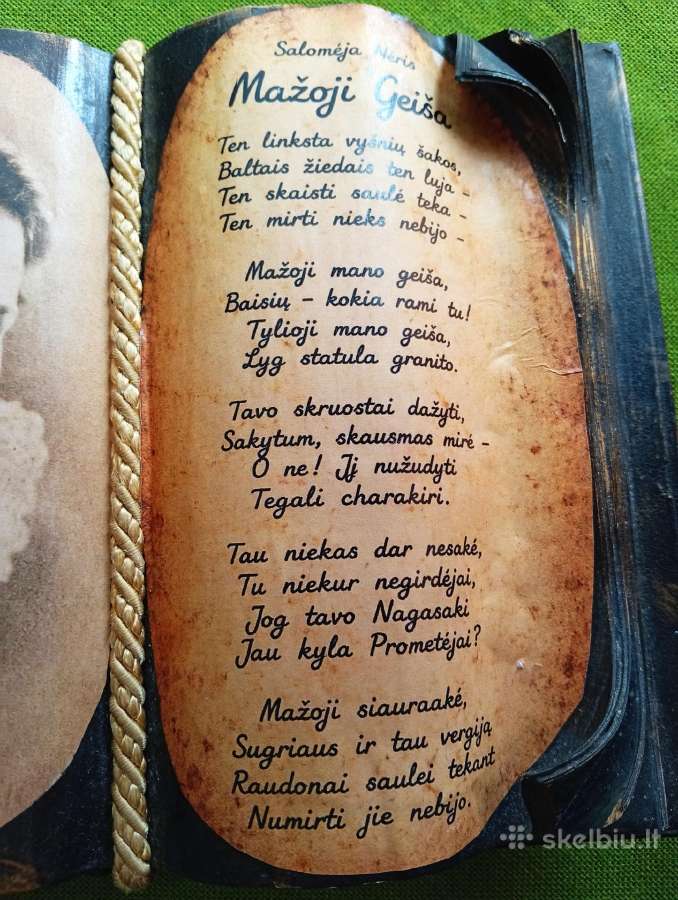 Salomėja Nėris
Mažoji Geiša
Ten linksta vyšnių šakos,
Baltais žiedais ten luja -
Ten skaisti saulė teka -
Ten mirti nieks nebijo -
Mažoji mano geiša,
Baisių - kokia rami tu!
Tylioji mano geiša,
Lyg statula granito.
Tavo skruostai dažyti,
Sakytum, skausmas mirė -
O ne! Jį nužudyti
Tegali charakiri.
Tau niekas dar nesakė,
Tu niekur negirdėjai,
Jog tavo Nagasaki
Jau kyla Prometėjai?
Mažoji siauraakė,
Sugriaus ir tau vergiją
Raudonai saulei tekant
Numirti jie nebijo.
skelbiu.lt